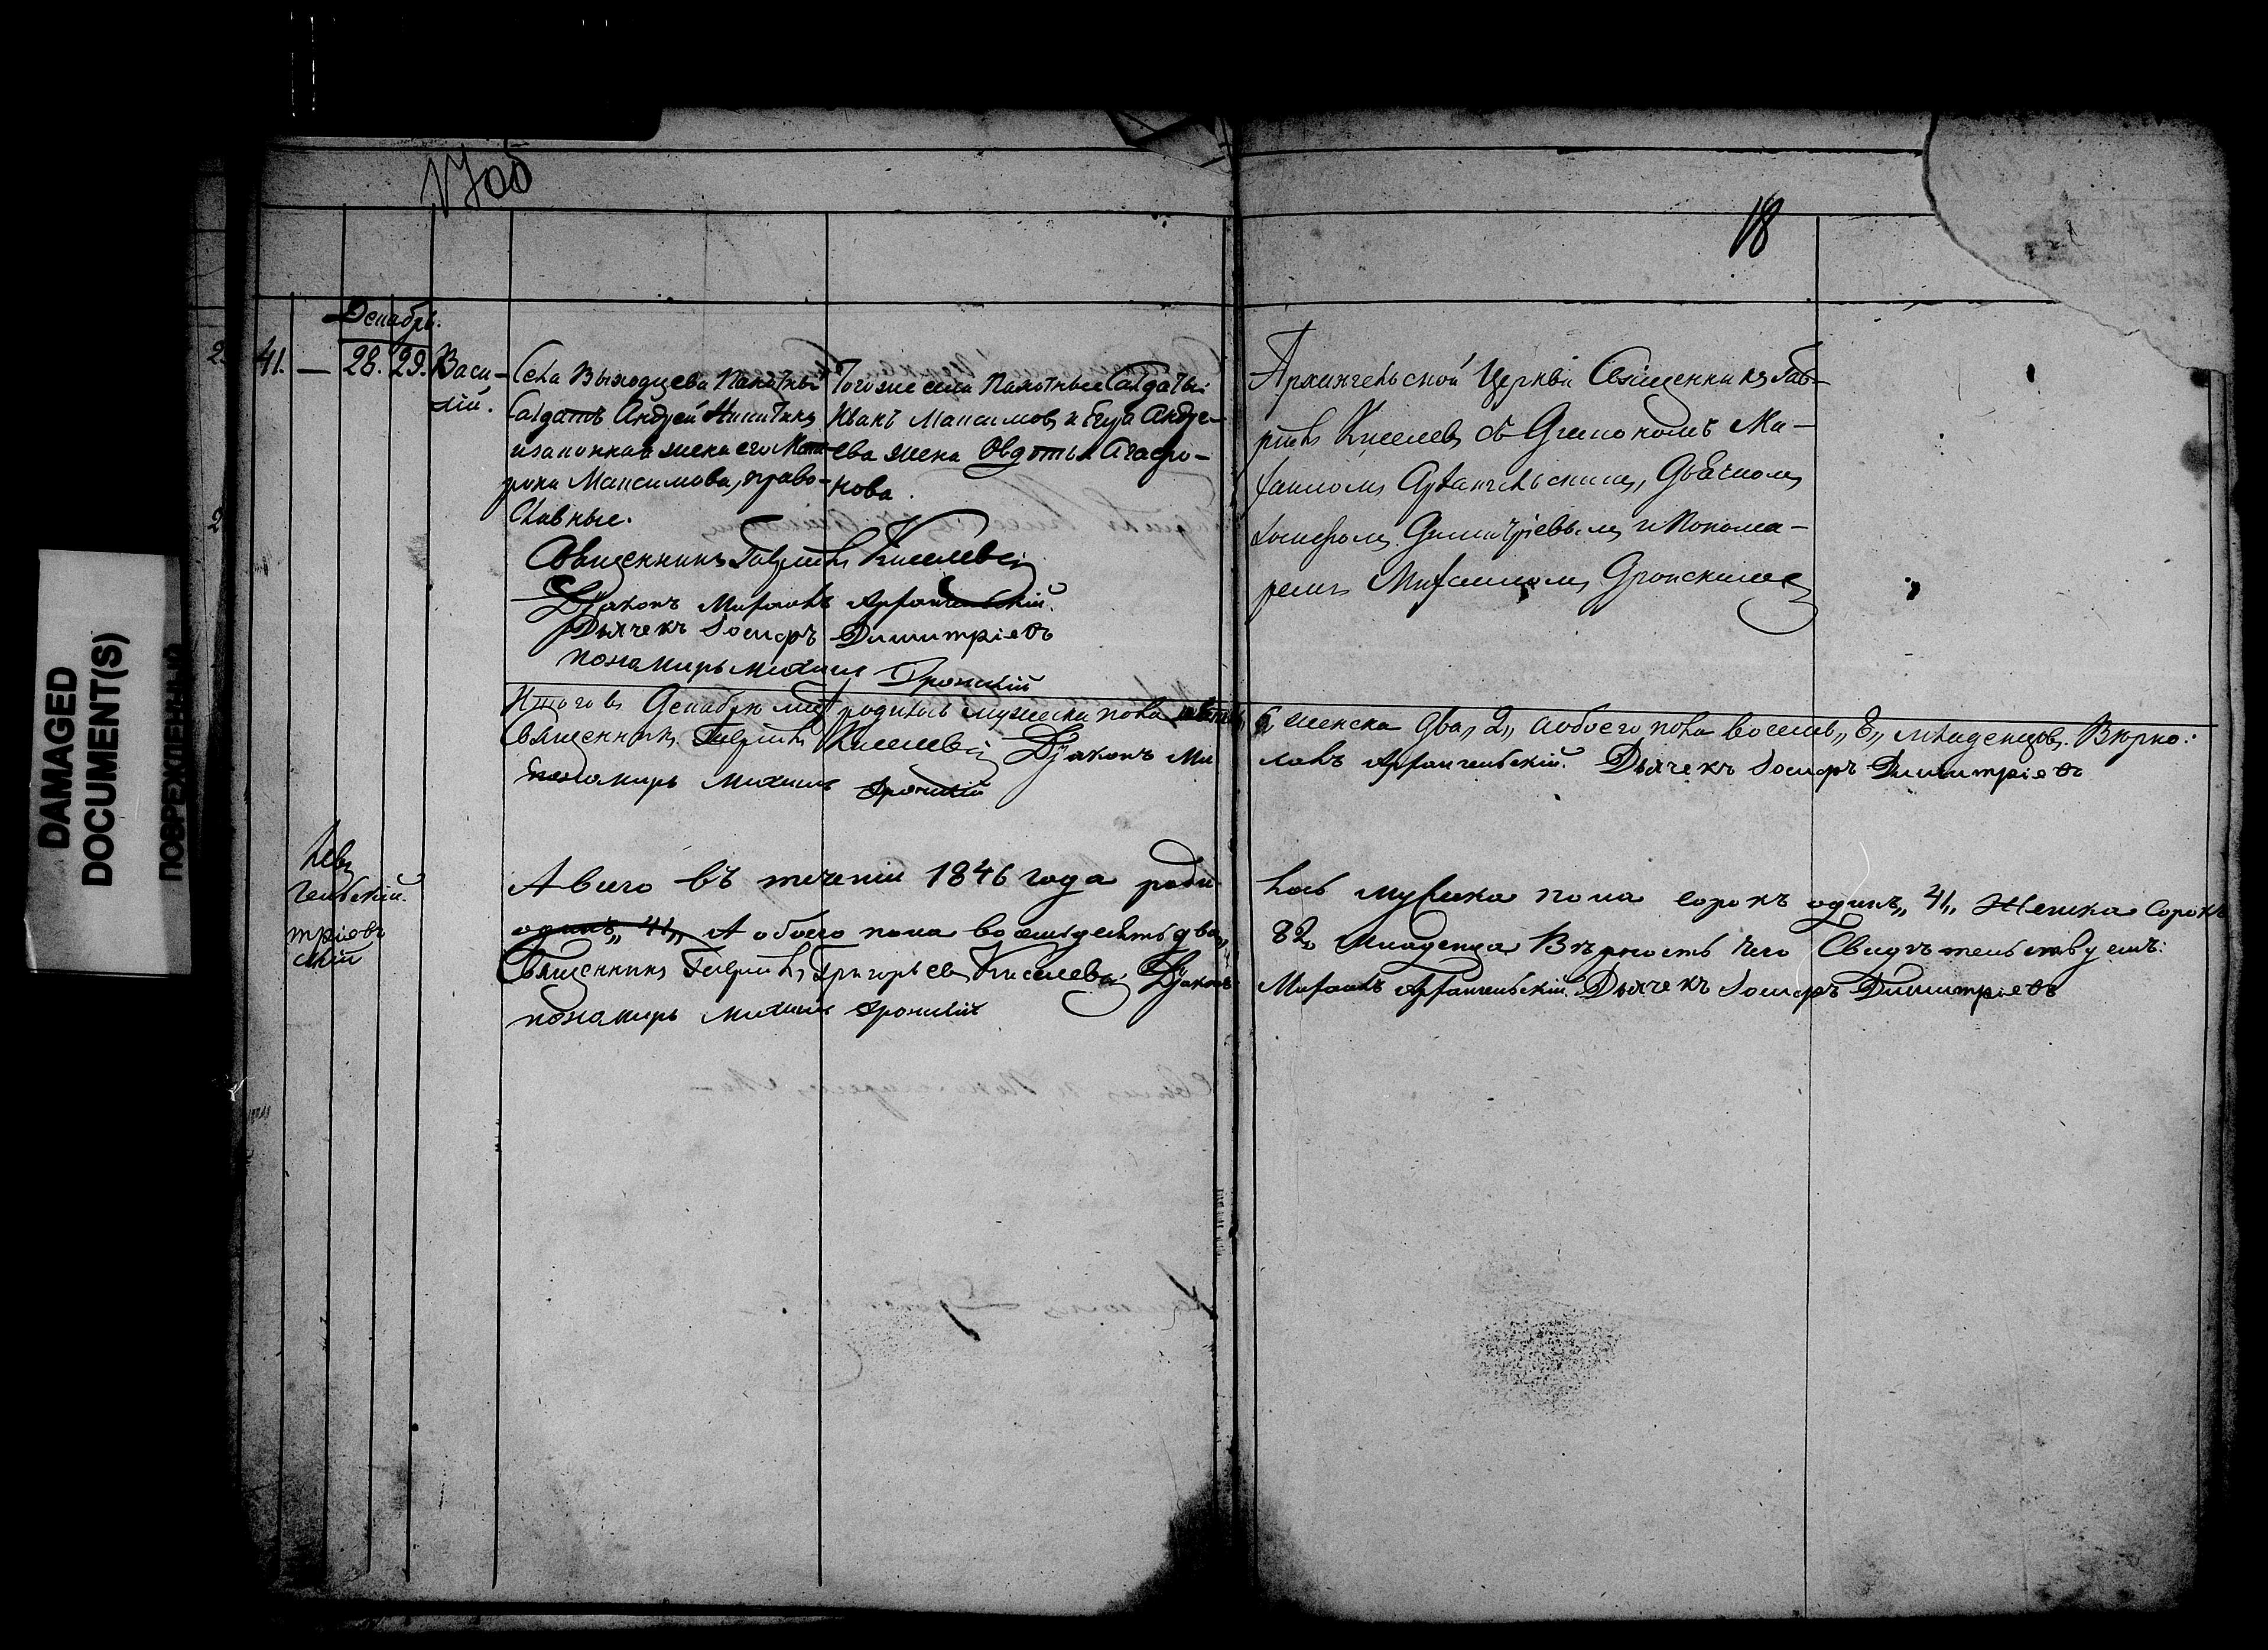 1706
18
Декабрь.
41. — 28. 29. Васи-
лій.
Села Выходцева Пахатный
Солдатъ Андрей Никитинъ
и законная жена его Мат-
рона Максимова, право-
славные.
Тогоже села Пахатные Солдаты
Иванъ Максимовъ и Егура Андре-
ева жена Овдотья Агафо-
нова.
Архангельской Церкви Священникъ Гав-
риилъ Киселевъ съ Діакономъ Ми-
хаиломъ Архангельскимъ, Дьячкомъ
Іосифомъ Димитріевымъ и Понома-
ремъ Михаиломъ Дронскимъ
Священникъ Гавріилъ Киселевъ
Діаконъ Михаилъ Архангельскій.
Дьячекъ Іосифъ Димитріевъ
пономирь михаил Дронскій
Итого въ Декабрѣ родилось мужеска пола 6 женска два „2„ а обоего пола восемь „8„ младенцовъ. Вѣрно:
Священникъ Гавріилъ Киселевъ Діаконъ Ми
хаилъ Архангельскій. Дьячекъ Іосифъ Димитріевъ
пономирь михаилъ Дронскій
левъ
гельскій.
тріевъ
скій
А всего въ теченіи 1846 года роди
лось мужска пола сорокъ одинъ „41„ Женска Сорокъ
одинъ „41„ А обоего пола восемьдесятъ два „
82„ младенца Вѣрность чего Свидѣтельствуемъ:
Священникъ Гавріилъ Григорьевъ Киселевъ Діаконъ
Михаилъ Архангельскій. Дьячекъ Іосифъ Димитріевъ
пономирь михаилъ Дронскій
DAMAGED
DOCUMENT(S)
ПОВРЕЖДЕННЫЙ